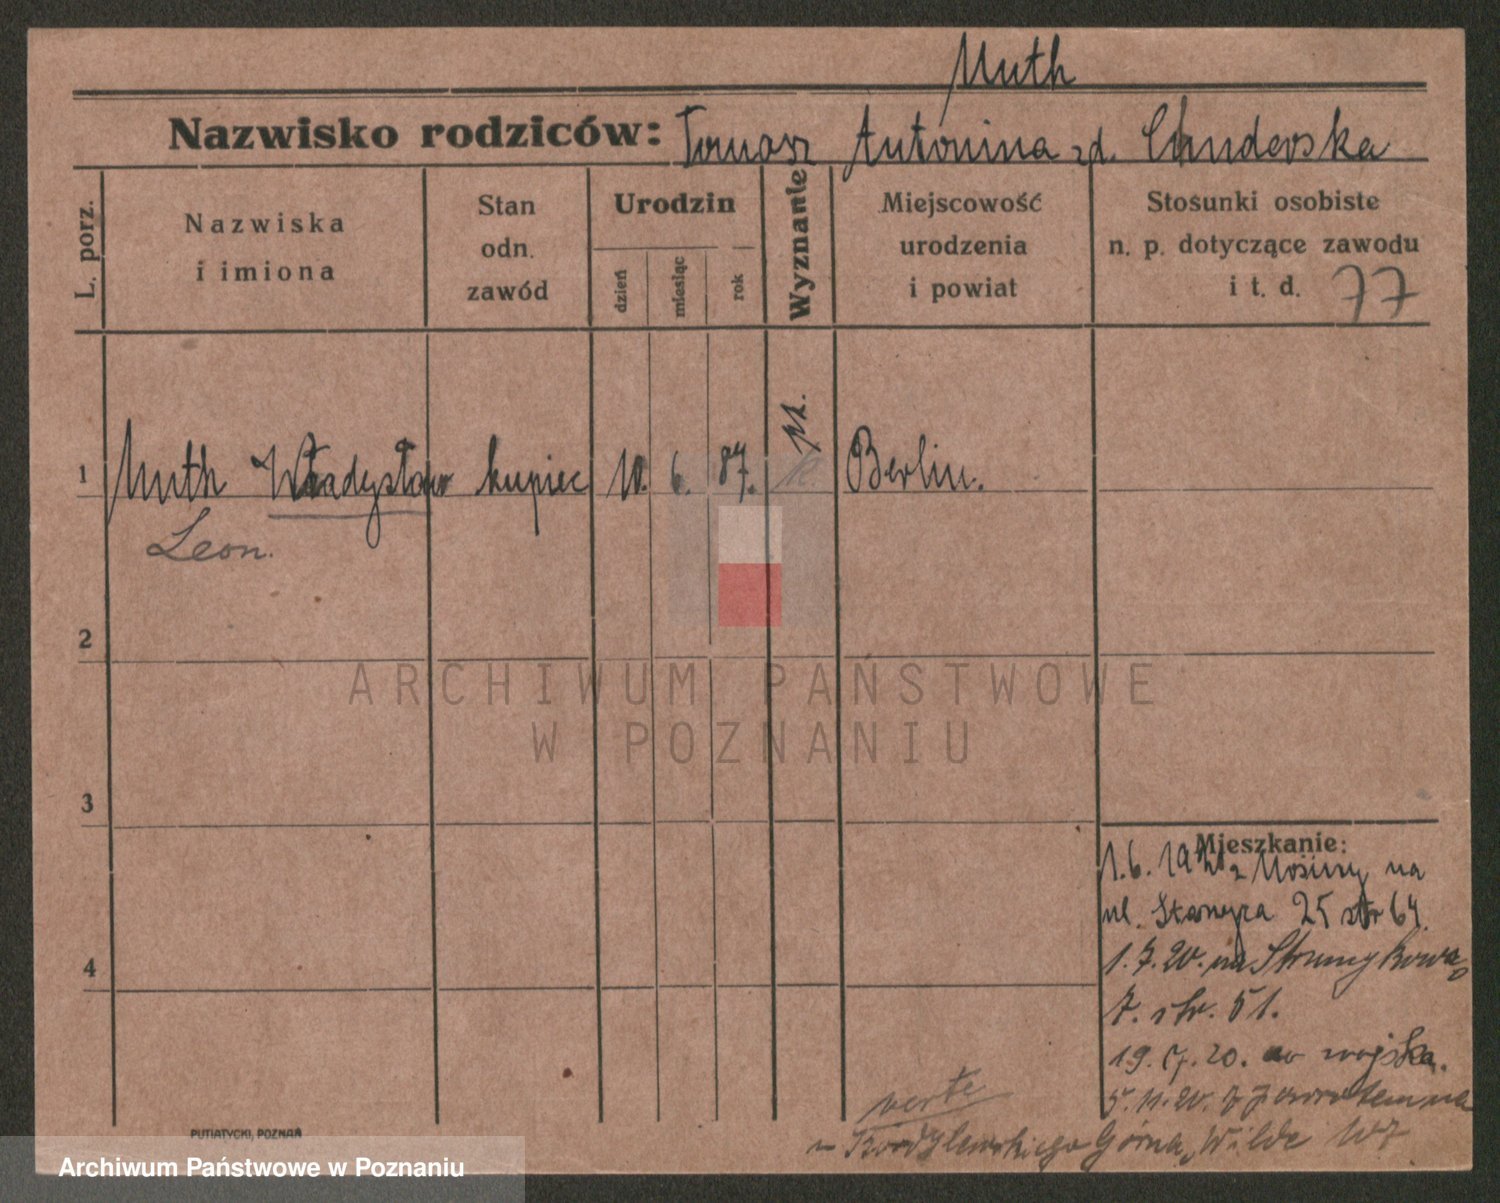 Muth
Nazwisko rodziców: Tomasz Antonina zd. Chuderska
L. porz.
Nazwiska i imiona
Stan odn. zawód
Urodzin
dzień
miesiąc
rok
Wyznanie
Miejscowość urodzenia i powiat
Stosunki osobiste n. p. dotyczące zawodu i t. d. 77
1 Muth Władysław kupiec 10. 6. 87. rk. k. Berlin.
Leon.
2
ARCHIWUM PAŃSTWOWE
W POZNANIU
3
Mieszkanie:
1.6. 19 z Mosiny na
ul. Staryza 25 str 64.
4
1.7.20. na Strumykowa
7. str. 51.
19.7.20. do wojska.
5.11.20. z powrotem na
verte
Kordylewskiego Górna Wilde 107
PUTIATYCKI, POZNAŃ
Archiwum Państwowe w Poznaniu